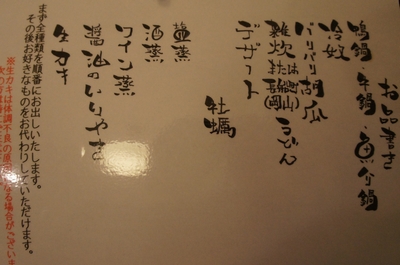 お品書き
鴨鍋・牛鍋・魚介鍋
冷奴
パリパリ胡瓜
雑炊又は うどん
デザート
牡蠣
塩蒸
酒蒸
ワイン蒸
醤油のいりやき
生カキ
まず全種類を順番にお出しいたします。
その後お好きなものをお代わりしていただけます。
※生カキは体調不良の原因となる場合がございま